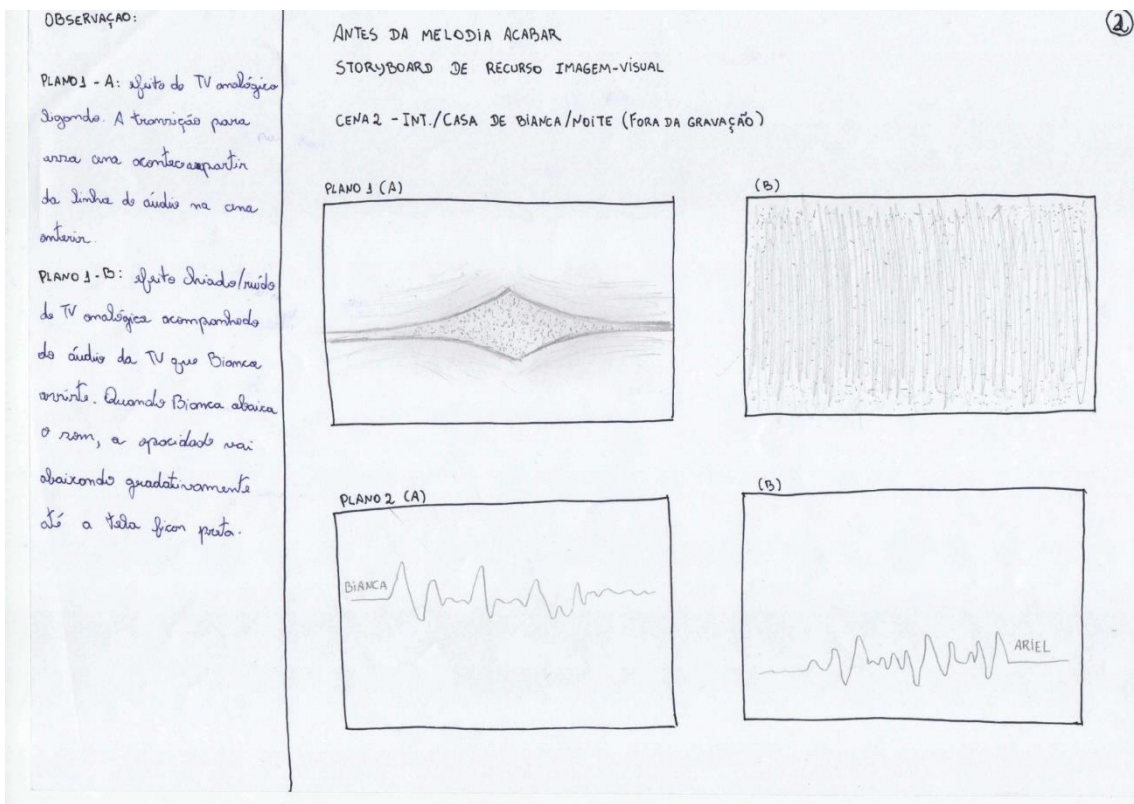 OBSERVAÇÃO:
PLANO 1 - A: efeito de TV analógica
ligando. A transição para
essa cena acontece a partir
da linha de áudio na cena
anterior.
PLANO 1 - B: efeito chiado/ruído
de TV analógica acompanhado
do áudio da TV que Bianca
assiste. Quando Bianca abaixa
o som, a opacidade vai
abaixando gradativamente
até a tela ficar preta.
2
ANTES DA MELODIA ACABAR
STORYBOARD DE RECURSO IMAGEM-VISUAL
CENA 2 - INT./CASA DE BIANCA/NOITE (FORA DA GRAVAÇÃO)
PLANO 1 (A)
(B)
PLANO 2 (A)
(B)
BIANCA
ARIEL